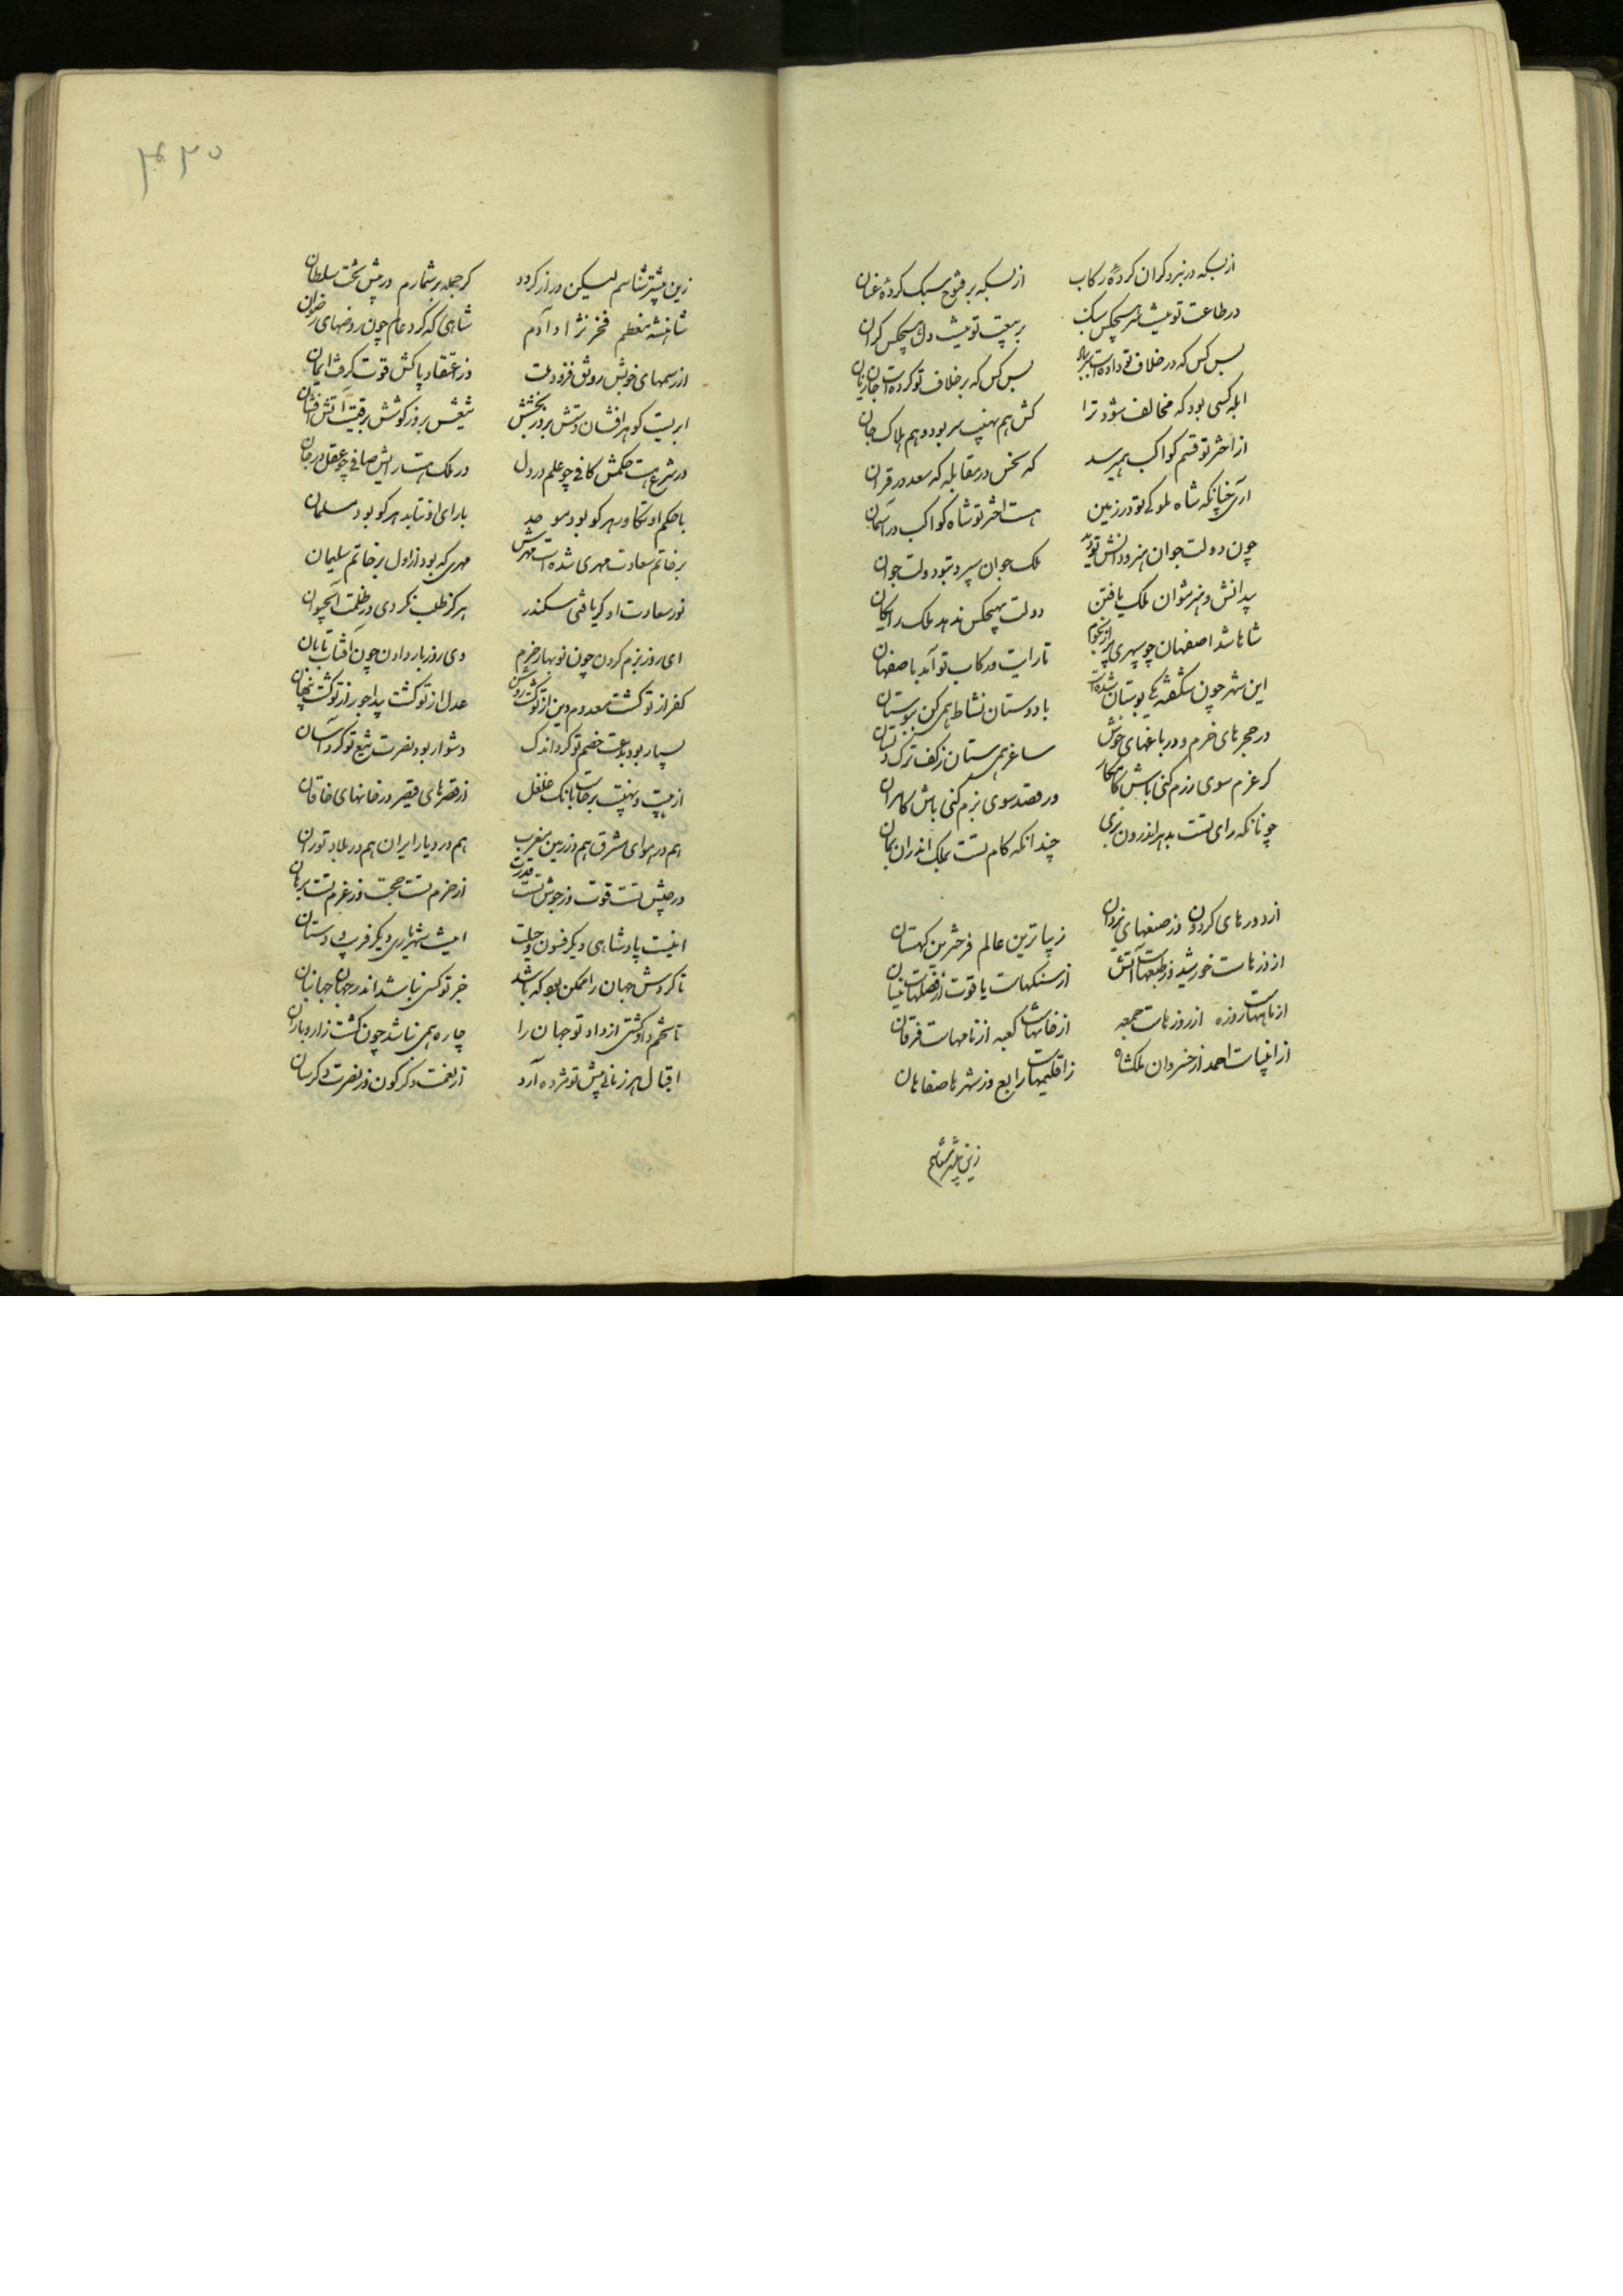 از بسکه در نبرد گران کردهٔ رکاب از بسکه بر فتوح سبک کردهٔ عنان
در طاعت تو نیست سر هیچکس سبک بر بیعت تو نیست دل هیچکس گران
بس کس که در خلاف تو داده است سر بباد بس کس که بر خلاف تو کرده است جان زیان
ابله کسی بود که مخالف شود ترا کش هم نهیب سر بود و هم هلاک جان
از اختر تو قسم کواکب همیرسد که نحس در مقابله که سعد در قران
آری چنانکه شاه ملوکی تو در زمین هست اختر تو شاه کواکب در آسمان
چون دولت جوان هنر و دانش تو دید ملک جوان سپرد بتو دولت جوان
بی دانش و هنر نتوان ملک یافتن دولت بهیچکس ندهد ملک رایگان
شاها شد اصفهان چو سپهری پر از نجوم تا رایت و رکاب تو آمد باصفهان
این شهر چون شکفته یکی بوستان شده است با دوستان نشاط همی کن ببوستان
در حجرهای خرم و در باغهای خوش ساغر همی ستان ز کف ترک دلستان
گر عزم سوی رزم کنی باش کامکار ور قصد سوی بزم کنی باش کامران
چونانکه رای تست بدهر اندرون بزی چندانکه کام تست بملک اندران بمان
از دورهای گردون وز صنعهای یزدان زیباترین عالم فرخترین کیهان
از نورهاست خورشید وز طبعهاست آتش از سنگهاست یاقوت از فصلهاست نیسان
از ماههاست روزه از روزهاست جمعه از خانهاست کعبه از نامهاست فرقان
از انبیاست احمد از خسروان ملکشاه ز اقلیمهاست رابع وز شهرها صفاهان
زین بیشتر شناسم
۴۳۰
زین بیشتر شناسم لیکن دراز گردد گر جمله برشمارم در پیش تخت سلطان
شاهنشه معظم فخر نژاد آدم شاهی که کرد عالم چون روضهای رضوان
از رسمهای خوبش رونق فزود ملت وز اعتقاد پاکش قوت گرفت ایمان
ابریست گوهر افشان دستش بروز بخشش تیغش بروز کوشش برقیست آتش افشان
در شرع هست حکمش کافی چو علم در دل در ملک هست رایش صافی چو عقل در جان
با حکم او تکاود هر کو بود موحد با رای او نتابد هر کو بود مسلمان
بر خاتم سعادت مهری شده است مهرش مهری که بود از اول بر خاتم سلیمان
نور سعادت او گر یافتی سکندر هرگز طلب نکردی در ظلمت آب حیوان
ای روز بزم کردن چون نوبهار خرم وی روز بار دادن چون آفتاب تابان
کفر از تو گشت معدوم دین از تو گشت روشن عدل از تو گشت پیدا جور از تو گشت پنهان
بسیار بود بدعت خصم تو کرد اندک دشوار بود نصرت تیغ تو کرد آسان
از هیبت و نهیبت برخاست بانک غلغل از قصرهای قیصر وز خانهای خاقان
هم در هوای مشرق هم در زمین مغرب هم در دیار ایران هم در بلاد توران
در جیش تست قوت وز جوش تست قدرت از حزم تست حجت وز عزم تست برهان
اینست پادشاهی دیگر فسون و حیلت اینست شهریاری دیگر فریب و دستان
تا گردش جهان را ممکن بود که باشد جز تو کسی نباشد اندر جهان جهانبان
تا تخم داد کشتی از داد تو جهان را چاره همی نباشد چون کشت زار و باران
اقبال هر زمانی پیش تو مژده آرد از نعمت دگرگون وز نصرت دگرسان